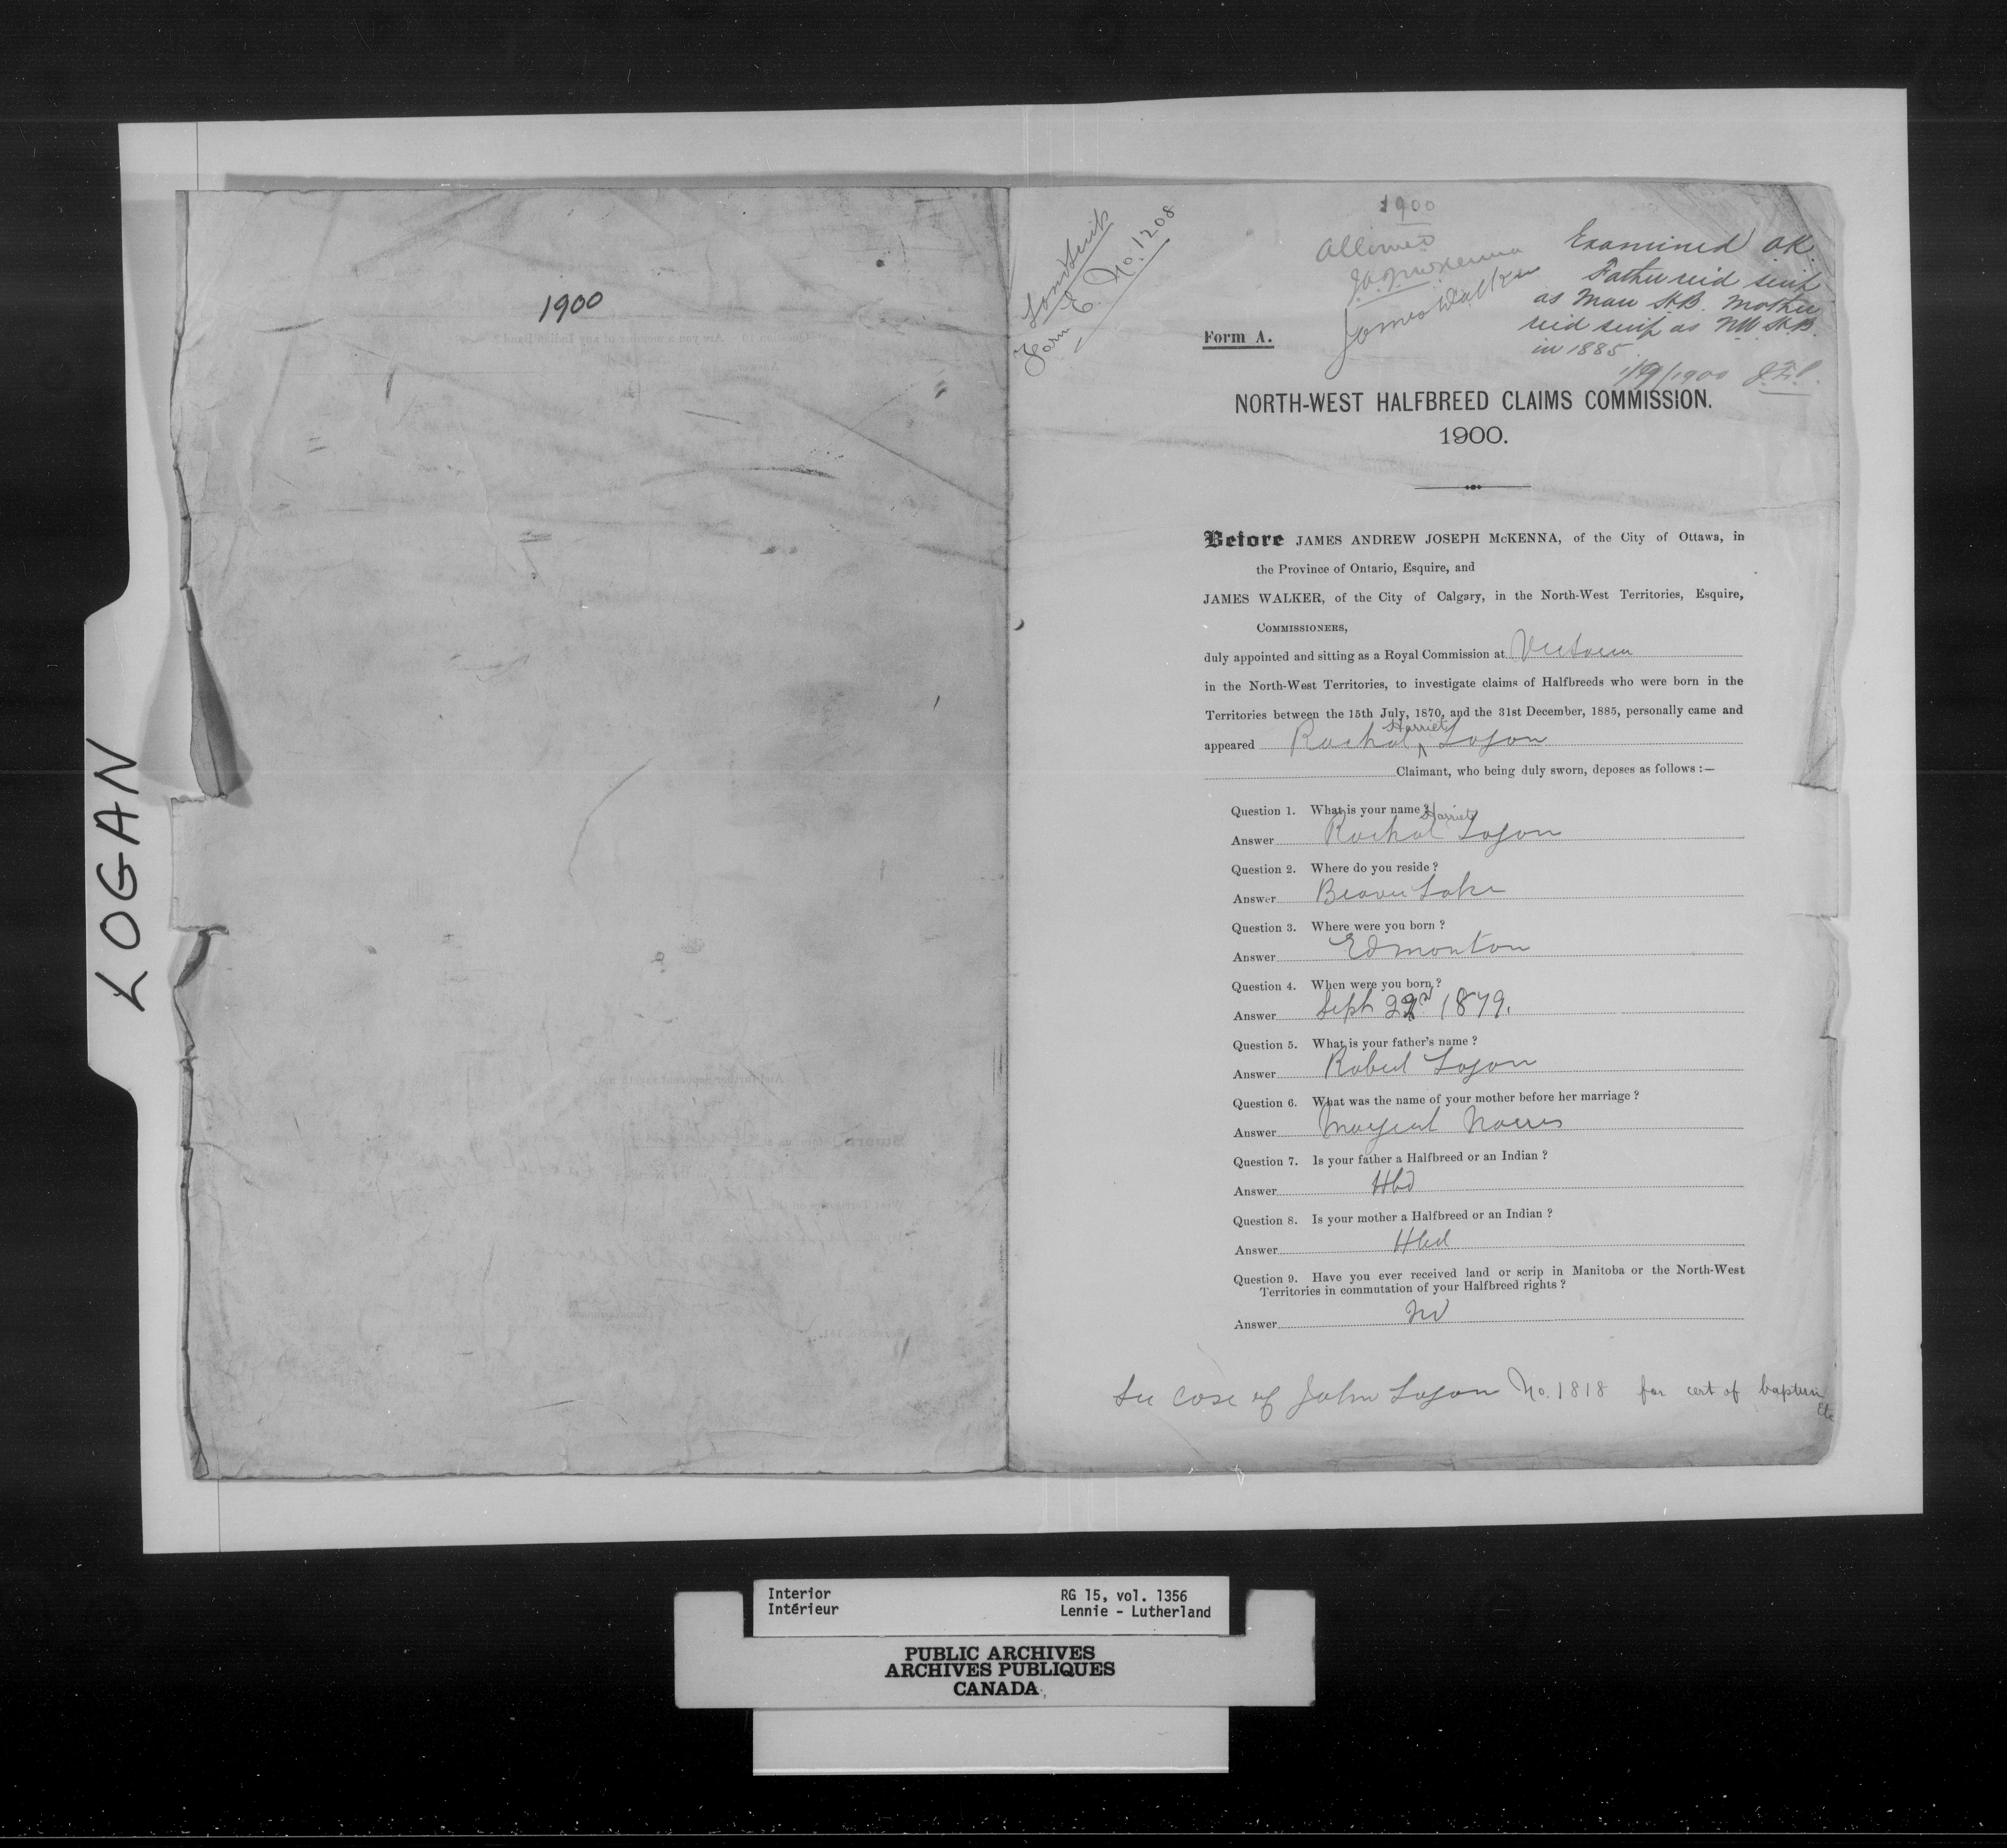 LOGAN
1900
Land Scrip
Form E. No. 1208
1900
Allowed
J.A.J. McKenna
James Walker
Examined OK.
Father recd scrip
as Man H.B. Mother
recd scrip as NW H.B.
in 1885
1900
Form A.
NORTH-WEST HALFBREED CLAIMS COMMISSION.
1900.
Before JAMES ANDREW JOSEPH McKENNA, of the City of Ottawa, in
the Province of Ontario, Esquire, and
JAMES WALKER, of the City of Calgary, in the North-West Territories, Esquire,
COMMISSIONERS,
duly appointed and sitting as a Royal Commission at Victoria
in the North-West Territories, to investigate claims of Halfbreeds who were born in the
Territories between the 15th July, 1870, and the 31st December, 1885, personally came and
appeared Rachal Harriet Logan
Claimant, who being duly sworn, deposes as follows :—
Question 1. What is your name ?
Answer Rachal Harriet Logan
Question 2. Where do you reside ?
Answer Beaver Lake
Question 3. Where were you born ?
Answer Edmonton
Question 4. When were you born ?
Answer Sept 22nd 1879.
Question 5. What is your father's name ?
Answer Robert Logan
Question 6. What was the name of your mother before her marriage ?
Answer Margaret Norris
Question 7. Is your father a Halfbreed or an Indian ?
Answer Hbd
Question 8. Is your mother a Halfbreed or an Indian ?
Answer Hbd
Question 9. Have you ever received land or scrip in Manitoba or the North-West
Territories in commutation of your Halfbreed rights ?
Answer No
See case of John Logan No. 1818 for cert of baptism
Etc
Interior RG 15, vol. 1356
Intérieur Lennie - Lutherland
PUBLIC ARCHIVES
ARCHIVES PUBLIQUES
CANADA